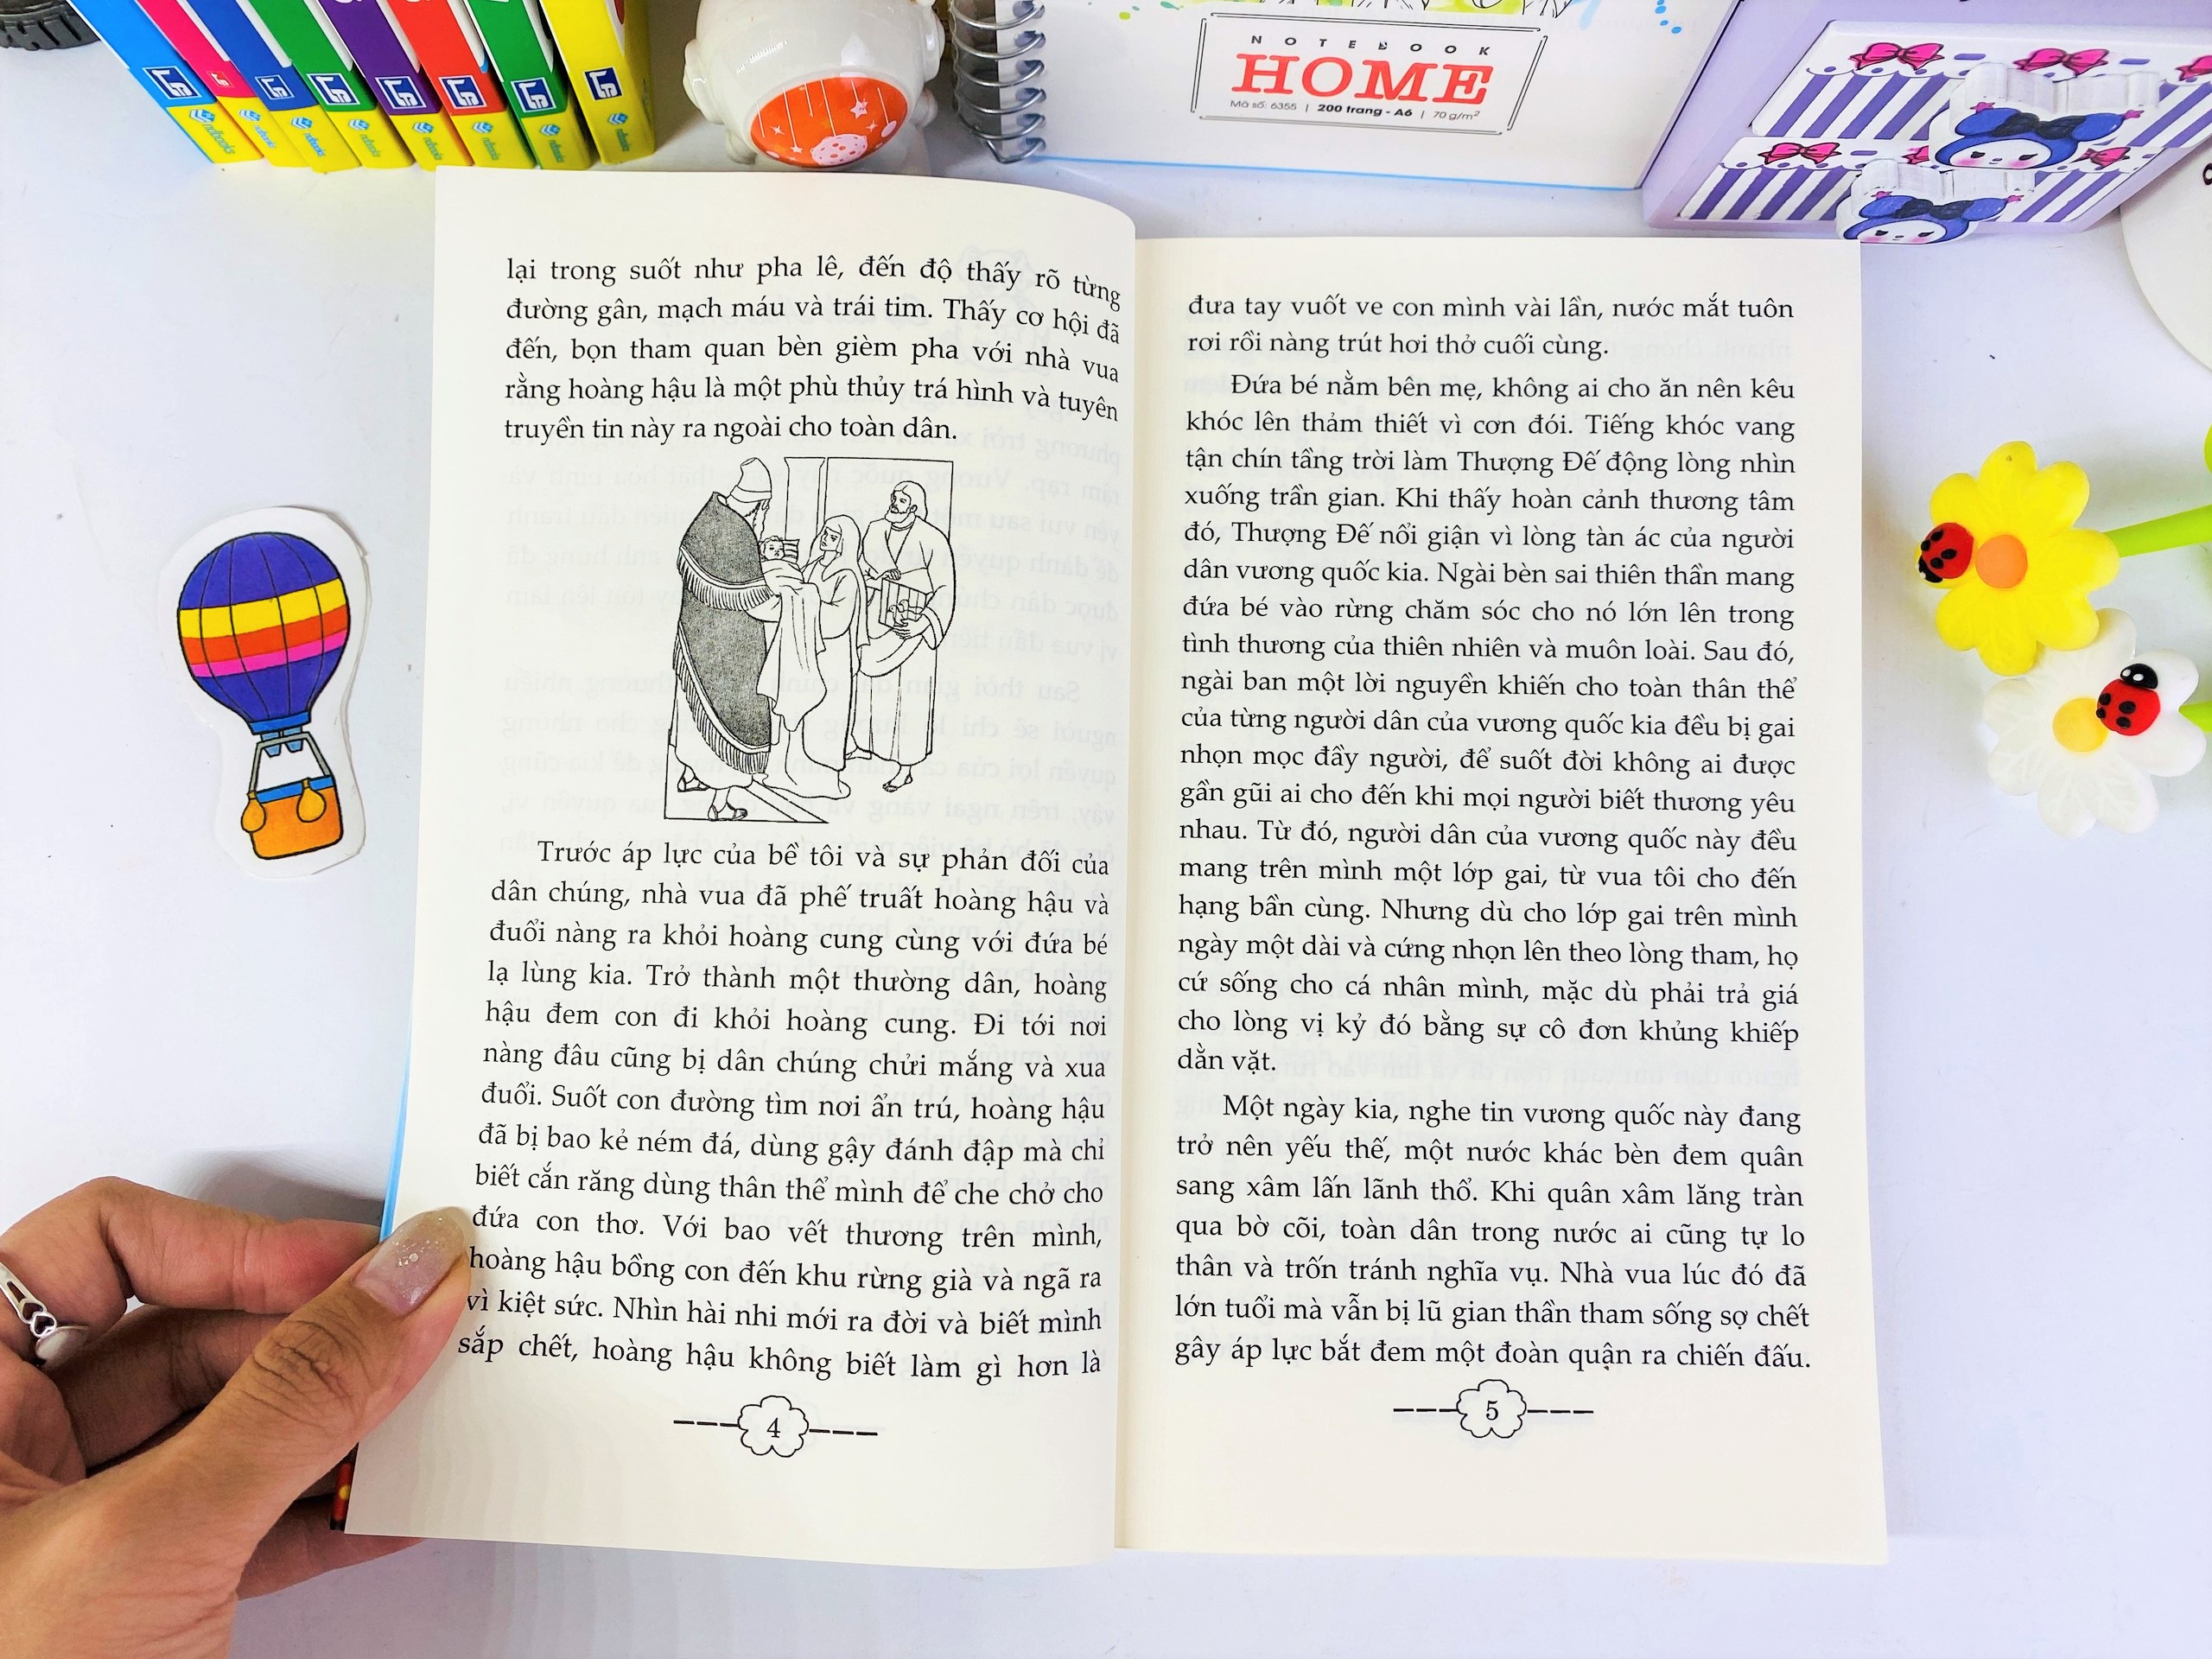 NOTEBOOK
HOME
Mã số: 6355 | 200 trang - A6 | 70 g/m²
ndbooks
ndbooks
ndbooks
ndbooks
ndbooks
ndbooks
ndbooks
lại trong suốt như pha lê, đến độ thấy rõ từng
đường gân, mạch máu và trái tim. Thấy cơ hội đã
đến, bọn tham quan bèn gièm pha với nhà vua
rằng hoàng hậu là một phù thủy trá hình và tuyên
truyền tin này ra ngoài cho toàn dân.
Trước áp lực của bề tôi và sự phản đối của
dân chúng, nhà vua đã phế truất hoàng hậu và
đuổi nàng ra khỏi hoàng cung cùng với đứa bé
lạ lùng kia. Trở thành một thường dân, hoàng
hậu đem con đi khỏi hoàng cung. Đi tới nơi
nàng đâu cũng bị dân chúng chửi mắng và xua
đuổi. Suốt con đường tìm nơi ẩn trú, hoàng hậu
đã bị bao kẻ ném đá, dùng gậy đánh đập mà chỉ
biết cắn răng dùng thân thể mình để che chở cho
đứa con thơ. Với bao vết thương trên mình,
hoàng hậu bồng con đến khu rừng già và ngã ra
vì kiệt sức. Nhìn hài nhi mới ra đời và biết mình
sắp chết, hoàng hậu không biết làm gì hơn là
4
đưa tay vuốt ve con mình vài lần, nước mắt tuôn
rơi rồi nàng trút hơi thở cuối cùng.
Đứa bé nằm bên mẹ, không ai cho ăn nên kêu
khóc lên thảm thiết vì cơn đói. Tiếng khóc vang
tận chín tầng trời làm Thượng Đế động lòng nhìn
xuống trần gian. Khi thấy hoàn cảnh thương tâm
đó, Thượng Đế nổi giận vì lòng tàn ác của người
dân vương quốc kia. Ngài bèn sai thiên thần mang
đứa bé vào rừng chăm sóc cho nó lớn lên trong
tình thương của thiên nhiên và muôn loài. Sau đó,
ngài ban một lời nguyền khiến cho toàn thân thể
của từng người dân của vương quốc kia đều bị gai
nhọn mọc đầy người, để suốt đời không ai được
gần gũi ai cho đến khi mọi người biết thương yêu
nhau. Từ đó, người dân của vương quốc này đều
mang trên mình một lớp gai, từ vua tôi cho đến
hạng bần cùng. Nhưng dù cho lớp gai trên mình
ngày một dài và cứng nhọn lên theo lòng tham, họ
cứ sống cho cá nhân mình, mặc dù phải trả giá
cho lòng vị kỷ đó bằng sự cô đơn khủng khiếp
dằn vặt.
Một ngày kia, nghe tin vương quốc này đang
trở nên yếu thế, một nước khác bèn đem quân
sang xâm lấn lãnh thổ. Khi quân xâm lăng tràn
qua bờ cõi, toàn dân trong nước ai cũng tự lo
thân và trốn tránh nghĩa vụ. Nhà vua lúc đó đã
lớn tuổi mà vẫn bị lũ gian thần tham sống sợ chết
gây áp lực bắt đem một đoàn quận ra chiến đấu.
5